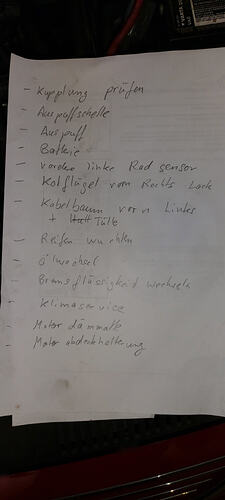 - Kupplung prüfen
- Auspuffschelle
- Auspuff
- Batterie
- vordere linke Rad sensor
- Kotflügel vorn Rechts Lack
- Kabelbaum vorn Links
+ Tülle
- Reifen wuchten
- Ölwechsel
- Bremsflüssigkeit wechseln
- Klimaservice
- Motor dämmatte
- Motor abdeckhalterung